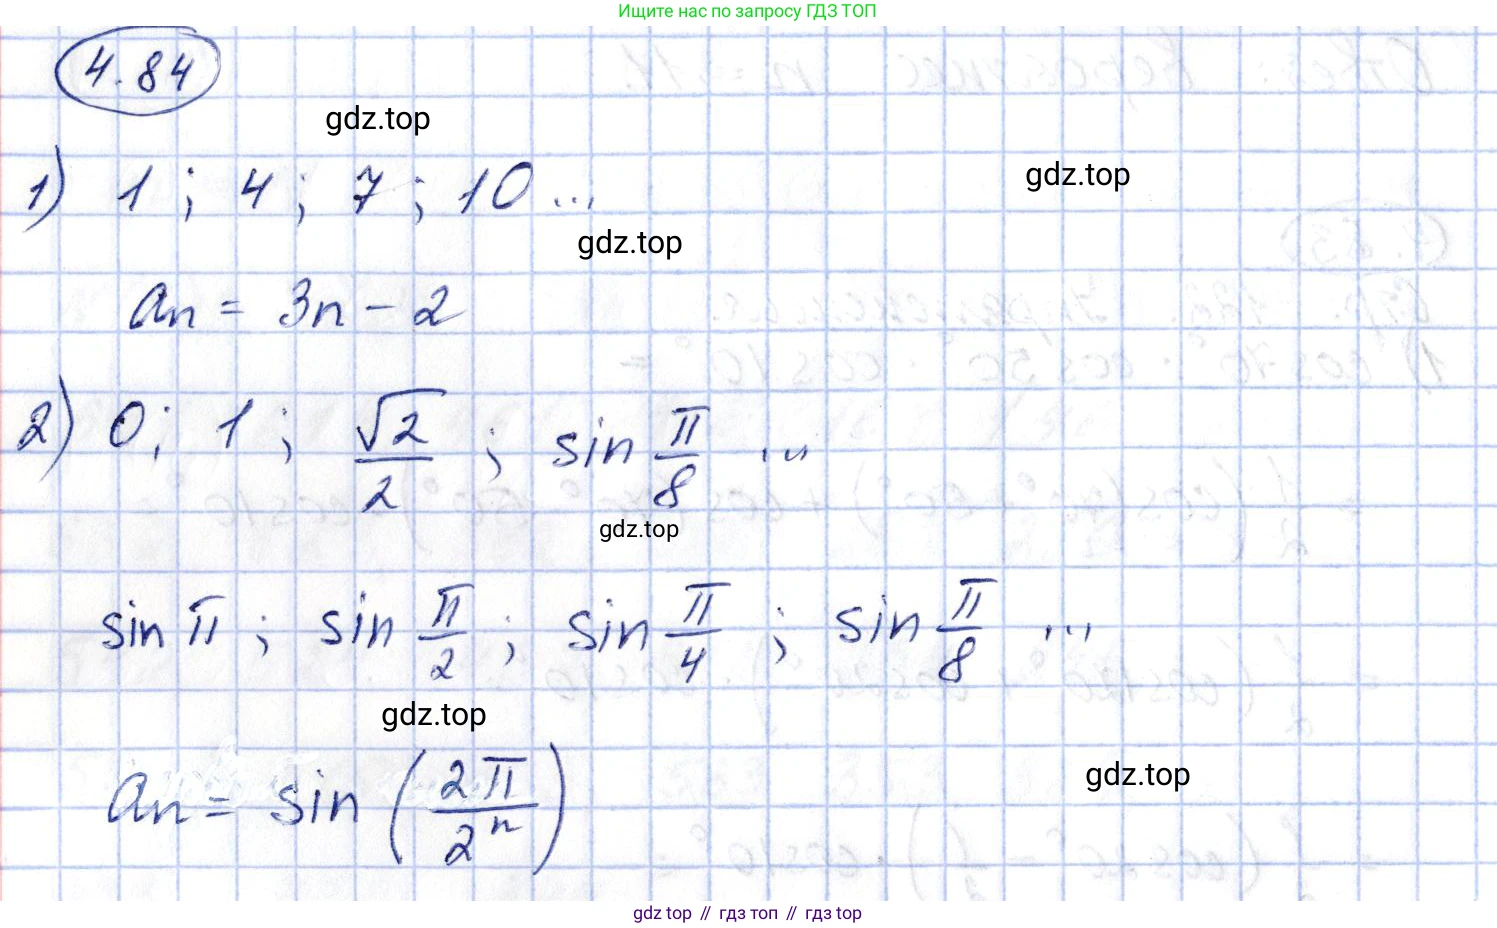 Ищите нас по запросу ГДЗ ТОП
4.84
gdz.top
1) 1 ; 4 ; 7 ; 10 ...
gdz.top
gdz.top
an = 3n - 2
2) 0; 1 ; √2/2 ; sin π/8 ...
gdz.top
sin π ; sin π/2 ; sin π/4 ; sin π/8 ...
gdz.top
gdz.top
an = sin (2π/2^n)
gdz top // гдз топ // гдз top